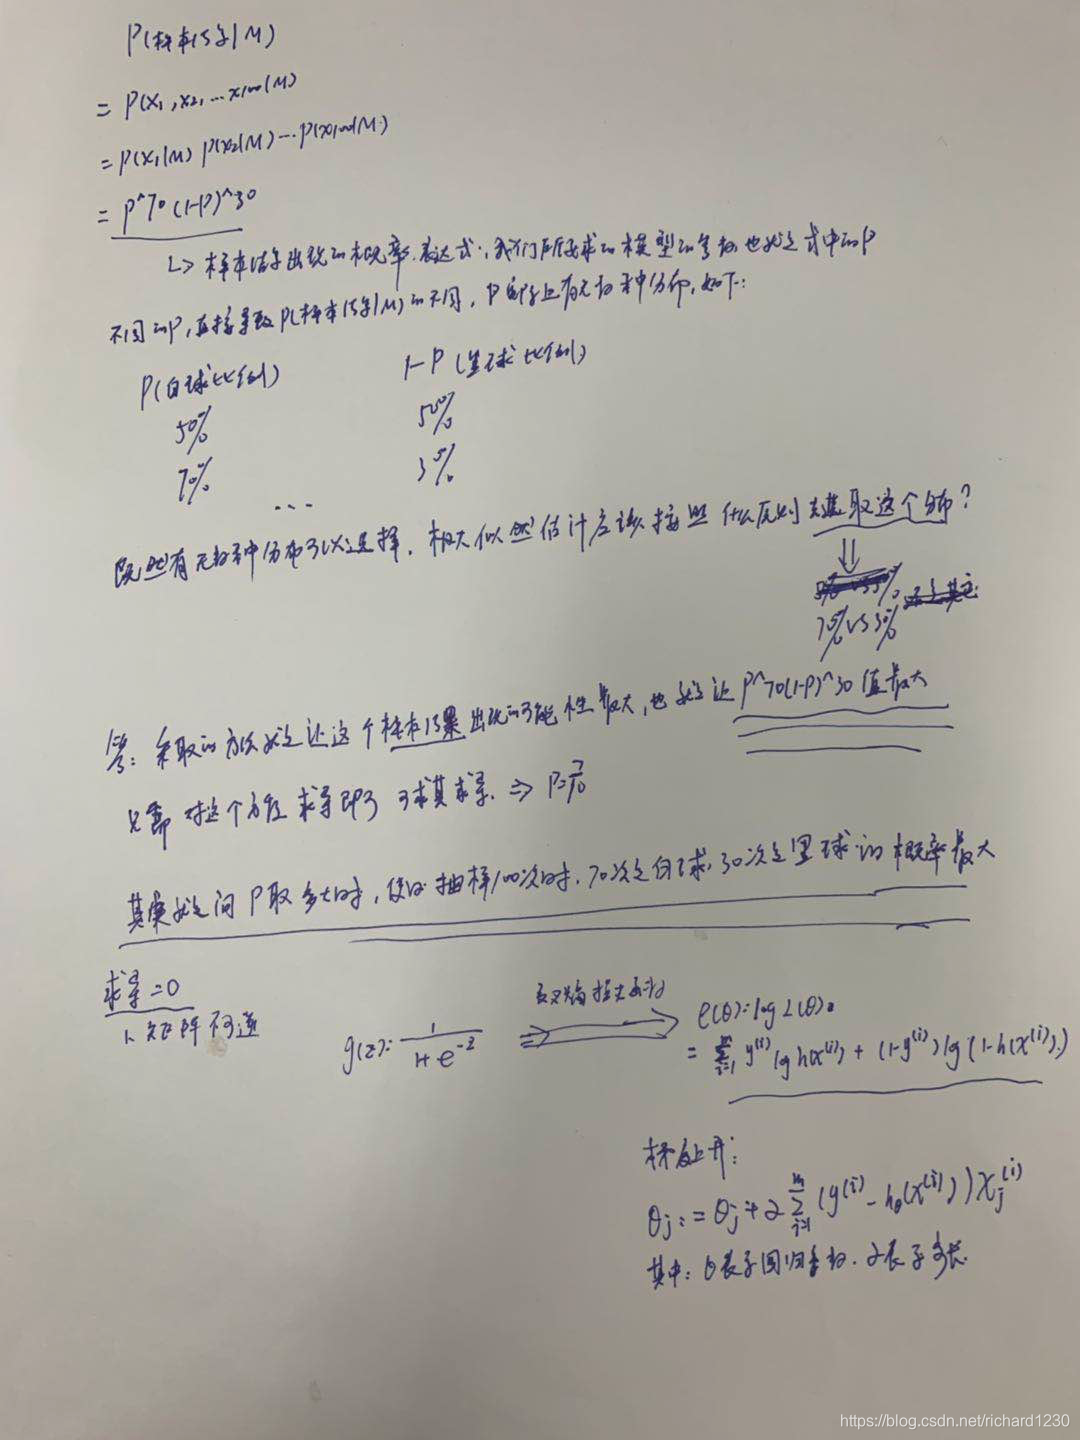 P(样本结果|M)
= P(x1,x2,...x100|M)
= P(x1|M) P(x2|M)...P(x100|M)
= P^70(1-P)^30
样本结果出现的概率表达式,我们所要求的模型的参数也就是式中的P
不同的P,直接导致P(样本结果|M)的不同,P实际上有无数种分布,如下:
P(白球比例) 1-P(黑球比例)
50% 50%
70% 30%
...
既然有无数种分布可以选择,极大似然估计应该按照什么原则去选取这个分布?
70% vs 30%
答:采取的方法是让这个样本结果出现的可能性最大,也就是让P^70(1-P)^30值最大
只需对这个方程求导即可 ⇒ P=7/10
其实就是问P取多大时,使得抽样100次时,70次是白球,30次是黑球的概率最大
求导=0
1. 矩阵不可逆
g(z)=1/(1+e^-z) ⇒ ℓ(θ)=log L(θ)=
= Σ(i=1..m) y^(i) lg h(x^(i)) + (1-y^(i)) lg(1-h(x^(i)))
梯度上升:
θj := θj + α Σ(i=1..m) (y^(i) - hθ(x^(i))) xj^(i)
其中:θ表示回归系数,α表示步长
https://blog.csdn.net/richard1230